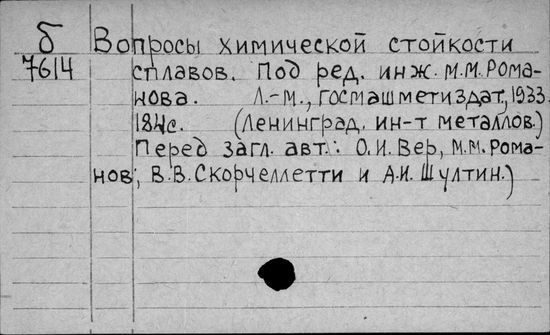 б Вопросы химической стойкости
7614 сплавов. Под ред. инж. М.М. Рома-
нова. Л.-М., Госмашметиздат, 1933.
184с. (Ленинград. ин-т металлов.)
Перед загл. авт.: О.И. Вер, М.М. Рома-
нов, В.В. Скорчеллетти и А.И. Шултин.)